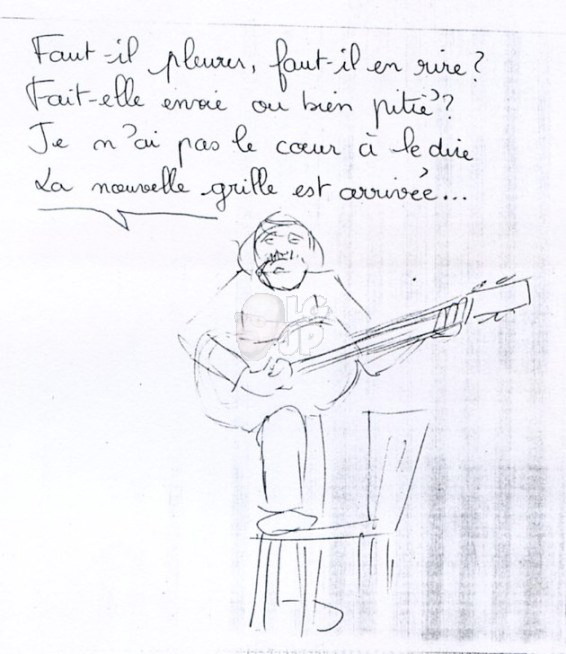 Faut-il pleurer, faut-il en rire?
Fait-elle envie ou bien pitié?
Je n'ai pas le cœur à le dire
La nouvelle grille est arrivée...
JP